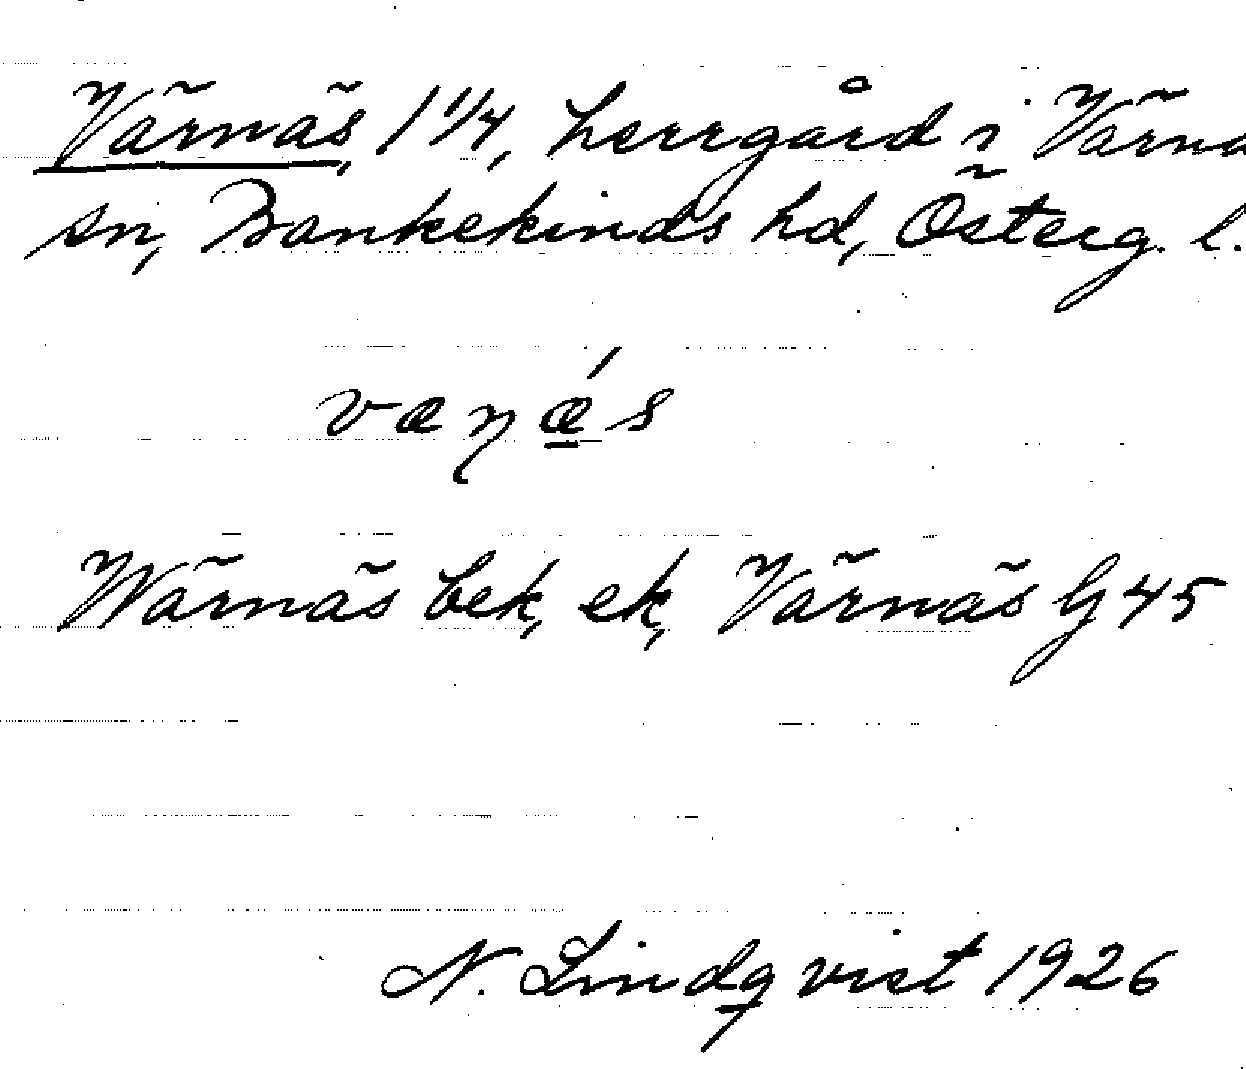 Värnäs, 1 1/4, herrgård i Värna
sn, Bankekinds hd, Österg. l.
væɳǽs
Wärnäs bek, ek, Värnäs G 45
N. Lindqvist 1926